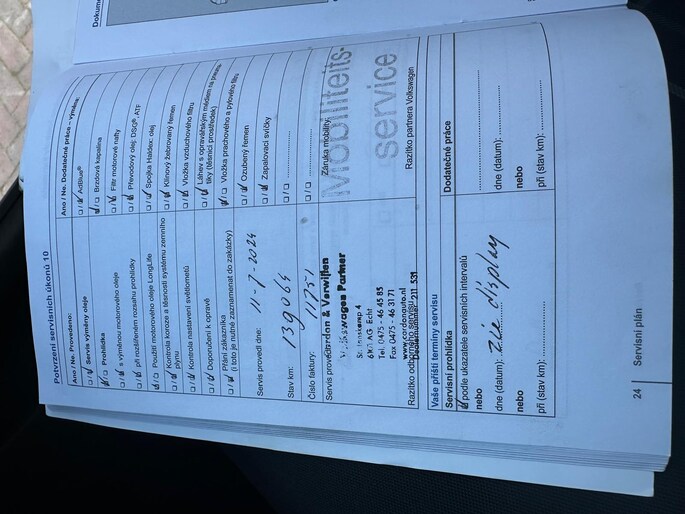 Potvrzení servisních úkonů 10
Ano / Ne. Provedeno:
Servis výměny oleje
Prohlídka
s výměnou motorového oleje
při rozšířeném rozsahu prohlídky
Použití motorového oleje LongLife
Kontrola koroze a těsnosti systému zemního
plynu
Kontrola nastavení světlometů
Doporučení k opravě
Přání zákazníka
(i toto je nutné zaznamenat do zakázky)
Servis proved dne: 11-7-2024
Stav km: 139064
Číslo faktury: 11751
Servis provedl:
Cordan & Verwijlen
Volkswagen Partner
6101 AG Echt
Tel. 0475 - 46 45 85
Fax 0475 - 46 31 71
www.cordonauto.nl
211 531
Razítko odborného servisu
Ano / Ne. Dodatečné práce - výměna:
AdBlue®
Brzdová kapalina
Filtr motorové nafty
Převodový olej: DSG®, ATF
Spojka Haldex: olej
Klínový žebrovaný řemen
Vložka vzduchového filtru
Láhev s opravářským médiem na pneuma-
tiky (těsnicí prostředek)
Vložka prachového a pylového filtru
Ozubený řemen
Zapalovací svíčky
Záruka mobility:
Mobiliteits-
service
Razítko partnera Volkswagen
Vaše příští termíny servisu
Servisní prohlídka
podle ukazatele servisních intervalů
nebo
dne (datum): zie display
nebo
při (stav km):
Dodatečné práce
dne (datum):
nebo
při (stav km):
24 Servisní plán